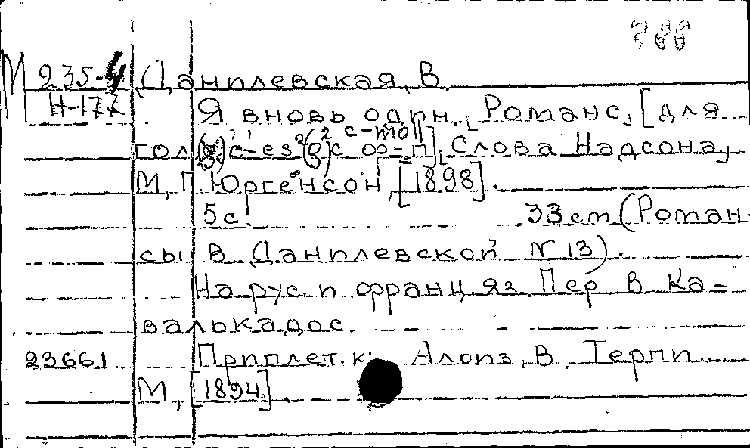 М 235-4 Данилевская, В.
Н-177 Я вновь один. Романс, [для
гол. (g) c-es² (g) с ф-п], Слова Надсона,
М, П. Юргенсон, [1898].
5с. 33см (Роман-
сы В. Данилевской N 13).
На рус. и франц яз. Пер В. Ка-
валькадос.
23661 Приплет. к: Алоиз, В. Терпи
М, [1894]